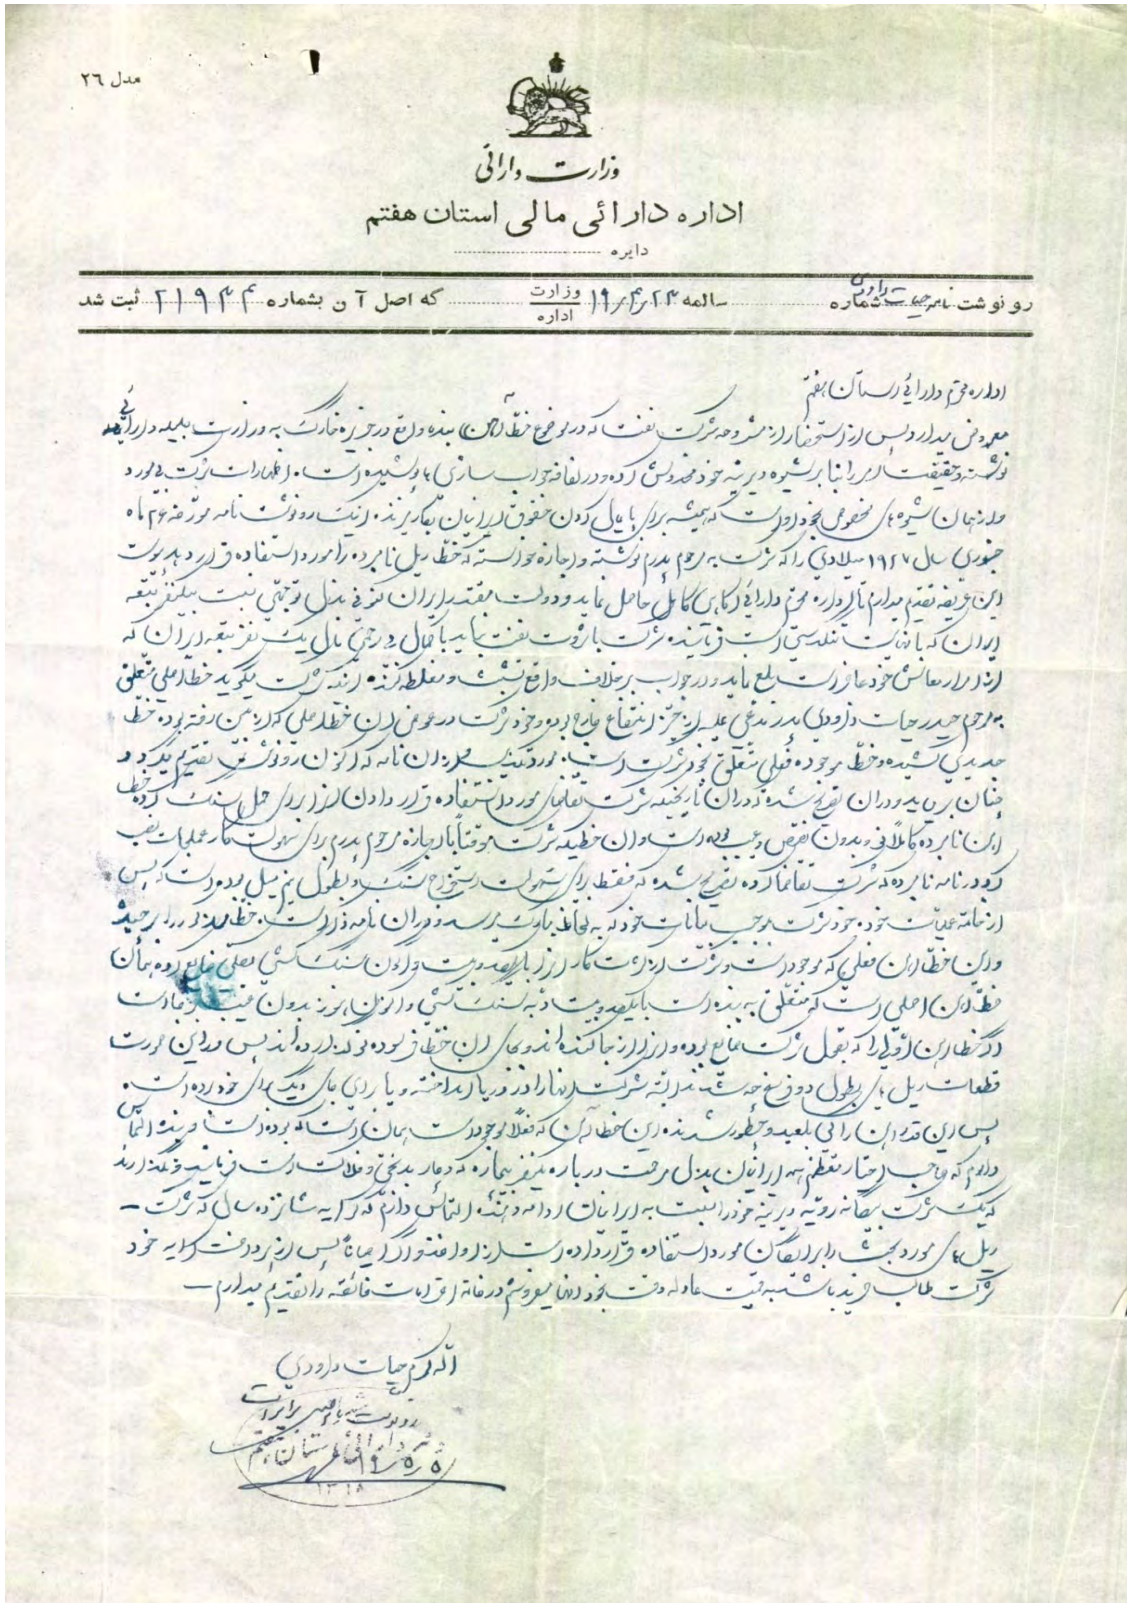 مدل ٢٦
وزارت دارائی
اداره دارائی مالی استان هفتم
دایره
رونوشت نامه حیات داودی شماره سالمه ۱۹/۴/۲۳ وزارت اداره که اصل آن بشماره ۲۱۹۳۴ ثبت شد
اداره محترم دارائی استان هفتم
معروض میدارد پس از استحضار از مشروحه شرکت نفت که در موضوع خط آهن بنده واقع در جزیره خارگ به وزارت جلیله دارائی
نوشته و حقیقت امر را بنا بر شیوه دیرینه خود مخدوش کرده و در لفافه جواب سازی ها پوشیده است. اظهارات شرکت بی مورد
و از همان شیوه های مخصوص بخود او است که همیشه برای پایمال کردن حقوق ایرانیان بکار برند. اینک رونوشت نامه مورخه ۲۶ ماه
جنوری سال ۱۹۲۷ میلادی را که شرکت به مرحوم پدرم نوشته و اجازه خواسته که خط ریل نامبرده را مورد استفاده قرار دهد پیوست
این عریضه تقدیم میدارم تا اداره محترم دارائی آگاهی کامل حاصل نماید و دولت مقتدر ایران کنونی بذل توجهی نسبت بیکنفر تبعه
ایران که با نهایت تنگدستی است فرمایند شرکت با ثروت نفت نباید با کمال بی رحمی مال یک نفر تبعه ایران که
از امرار معاش خود عاجز است بلع نماید و در جواب برخلاف واقع نشبث و مغلطه کند. اینکه شرکت میگوید خط اصلی متعلق
به مرحوم حیدر حیات داودی پدر مدعی علیه از حیز انتفاع خارج بوده و خود شرکت در عوض این خط اصلی که از بین رفته بوده خط
جدیدی کشیده و خط موجوده فعلی متعلق بخود شرکت است. مورد تکذیب است. از آن نامه که اکنون رونوشتش تقدیم میگردد
چنان برمیاید و در آن تصریح شده که در آن تاریخیکه شرکت تقاضای مورد استفاده قرار دادن آنرا برای حمل سنگ کرده خط
آهن نامبرده کاملاً و بدون نقص و عیب بوده است و آن خطیکه شرکت موقتاً با اجازه مرحوم پدرم برای سهولت کار عملیات نصب
کرد در نامه نامبرده که شرکت تقاضا کرده تصریح شده که فقط برای سهولت استخراج سنگ و بطول نیم میل بوده است که پس
از خاتمه عملیات خود. خود شرکت بموجب بیانات خود که به لحاظ مبارک برسد و در آن نامه ذکر است. خط مزبور را برچیده
و این خط آهن فعلی که موجود است و شرکت از زشت کار سنگ کشی فعلی ضایع کرده همان
خط آهن اصلی است که متعلق به بنده است
اگر خط آهن اولی را که بقول شرکت ضایع بوده و آنرا از جا کنده اند و بجای آن خط فرسوده نو گذارده اند پس در این صورت
قطعات ریل های بطول دو فرسخ چه شدند البته شرکت آنها را در دریا انداخته و یا برای جای دیگر برای خود برده است.
پس این قدر آهن را کی بلعید و چطور شدند این خط آهن که فعلاً موجود است همان است که بوده است و بنده التماس
دارم که صاحب اختار معظم همه ایرانیان بذل مرحمت درباره یکنفر بیچاره که دچار بدبختی و فلاکت است فرمایند و نگذارند
که یک شرکت بیگانه رویه دیرینه خود را نسبت به ایرانیان ادامه دهند. التماس دارم که کرایه شانزده سال که شرکت —
ریل های مورد بحث را برایگان مورد استفاده قرار داده است از او اخذ و اگر احیاناً پس از پرداخت کرایه خود
شرکت طالب خرید باشد به قیمت عادله وقت بخود آنها میفروشم در خاتمه احترامات فائقه را تقدیم میدارم —
اله کرم حیات داودی
رونوشت برابر اصل است
دفتر دارائی استان هفتم
۱۹/۵/۵
۱۳۱۸